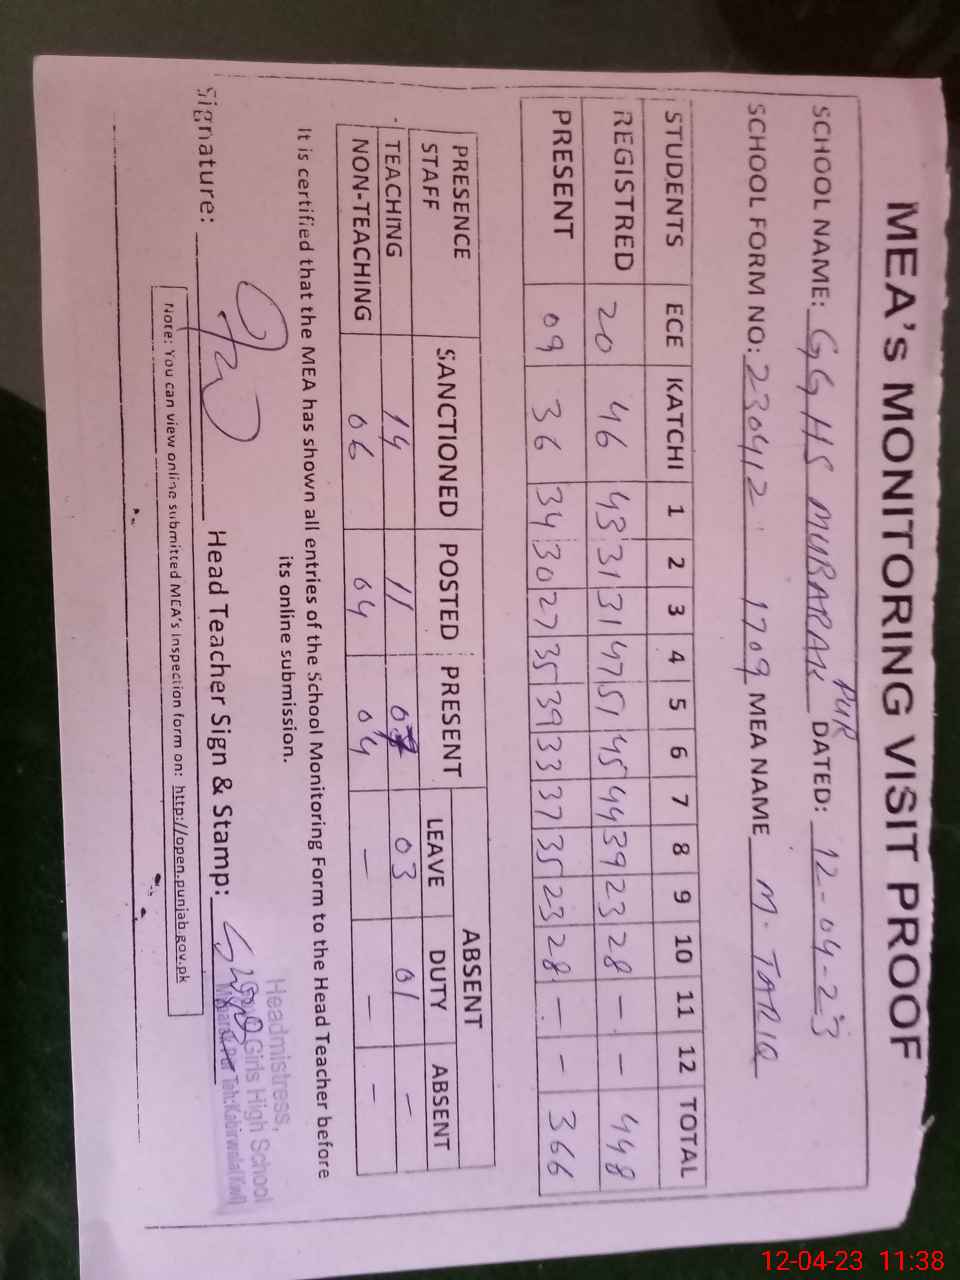 MEA's MONITORING VISIT PROOF
SCHOOL NAME: GGHS MUBARAK PUR DATED: 12-04-23
SCHOOL FORM NO: 230412 1709 MEA NAME M. TARIQ
STUDENTS ECE KATCHI 1 2 3 4 5 6 7 8 9 10 11 12 TOTAL
REGISTRED 20 46 43 31 31 47 51 45 44 39 23 28 - - 448
PRESENT 09 36 34 30 27 35 39 33 37 35 23 28 - - 366
PRESENCE STAFF SANCTIONED POSTED PRESENT ABSENT
LEAVE DUTY ABSENT
TEACHING 14 11 03 01 -
NON-TEACHING 06 04 04 - - -
It is certified that the MEA has shown all entries of the School Monitoring Form to the Head Teacher before
its online submission.
Signature: Head Teacher Sign & Stamp:
Headmistress,
Girls High School
Teh: Kabirwala (Kwl)
Note: You can view online submitted MEA's Inspection form on: http://open.punjab.gov.pk
12-04-23 11:38